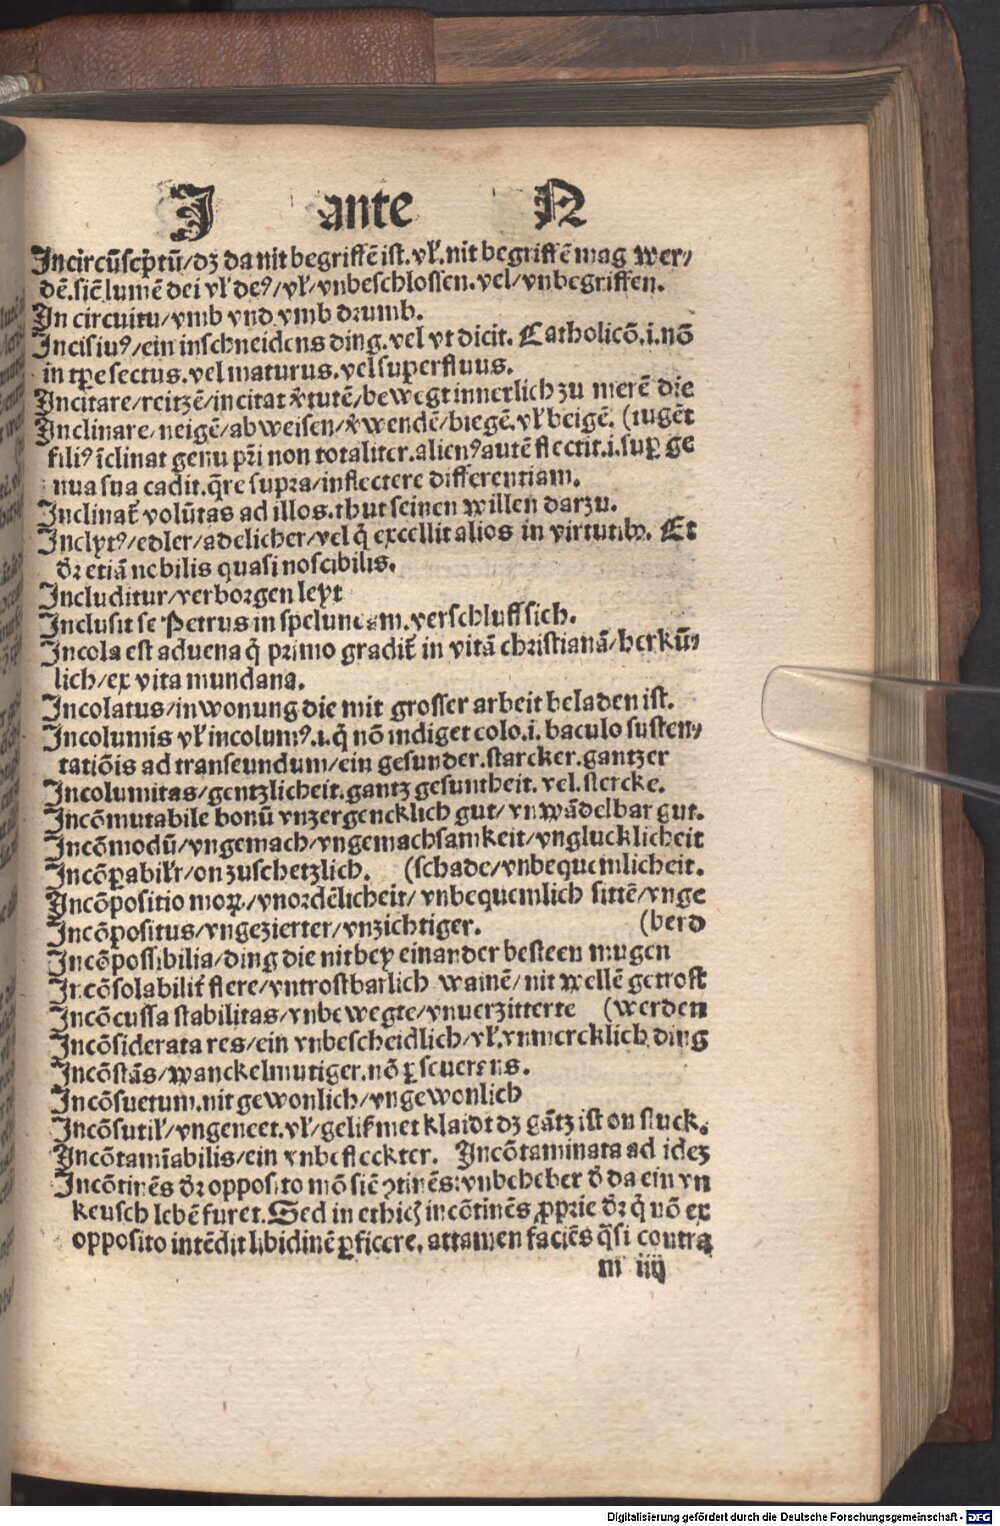 J ante N
Incircūscp̄tū/dz da nit begriffē ist.vl̄.nit begriffē mag wer/
dē.siē lumē dei vl̄ deꝰ/vl̄/vnbeschlossen.vel/vnbegriffen.
In circuitu/vmb vnd vmb drumb.
Incisiuꝰ/ein inschneidens ding.vel vt dicit. Catholicō.i.nō
in tp̄e sectus.vel maturus.vel superfluus.
Incitare/reitzē/incitat v̄tutē/bewegt innerlich zu merē die
Inclinare/neigē/abweisen/v̄wendē/biegē.vl̄ beigē. (tugēt
filiꝰ īclinat genu pr̄i non totaliter.alienꝰ autē flectit.i.sup̱ ge
nua sua cadit.q̄re supra/inflectere differentiam.
Inclinat̄ volūtas ad illos.thut seinen willen darzu.
Inclytꝰ/edler/adelicher/vel q̄ excellit alios in virtutibꝫ. Et
dr̄ etiā nobilis quasi noscibilis.
Includitur/verborgen leyt
Inclusit se Petrus in speluncam.verschluff sich.
Incola est aduena q̄ primo gradit̄ in vitā christianā/herkū/
lich/ex vita mundana.
Incolatus/inwonung die mit grosser arbeit beladen ist.
Incolumis vl̄ incolumꝰ.i.q̄ nō indiget colo.i. baculo susten/
tatiōis ad transeundum/ein gesunder.starcker.gantzer
Incolumitas/gentzlicheit.gantz gesuntheit. vel. stercke.
Incōmutabile bonū vnzergencklich gut/ vnwādelbar gut.
Incōmodū/vngemach/vngemachsamkeit/vnglucklicheit
Incōp̱abilr̄/onzuschetzlich. (schade/vnbequemlicheit.
Incōpositio moꝝ/vnordēlicheit/ vnbequemlich sittē/vnge
Incōpositus/vngezierter/vnzichtiger. (berd
Incōpossibilia/ding die nit bey einander besteen mugen
Incōsolabilit̄ flere/vntrostbarlich wainē/ nit wellē getrost
Incōcussa stabilitas/vnbewegte/vnuerzitterte (werden
Incōsiderata res/ein vnbescheidlich/vl̄.vnmercklich ding
Incōstās/wanckelmutiger.nō p̱seuerens.
Incōsuetum.nit gewonlich/vngewonlich
Incōsutil̄/vngeneet.vl̄/gelismet klaidt dz gātz ist on stuck.
Incōtamīabilis/ein vnbefleckter. Incōtaminata ad idez
Incōtinēs dr̄ opposito mō siē ꝯtinēs:vnbeheber d̄ da ein vn
keusch lebē furet.Sed in ethicꝭ incōtinēs ꝓprie dr̄ q̄ nō ex
opposito intēdit libidinē p̱ficere, attamen faciēs q̄si contra
m iiij
Digitalisierung gefördert durch die Deutsche Forschungsgemeinschaft - DFG